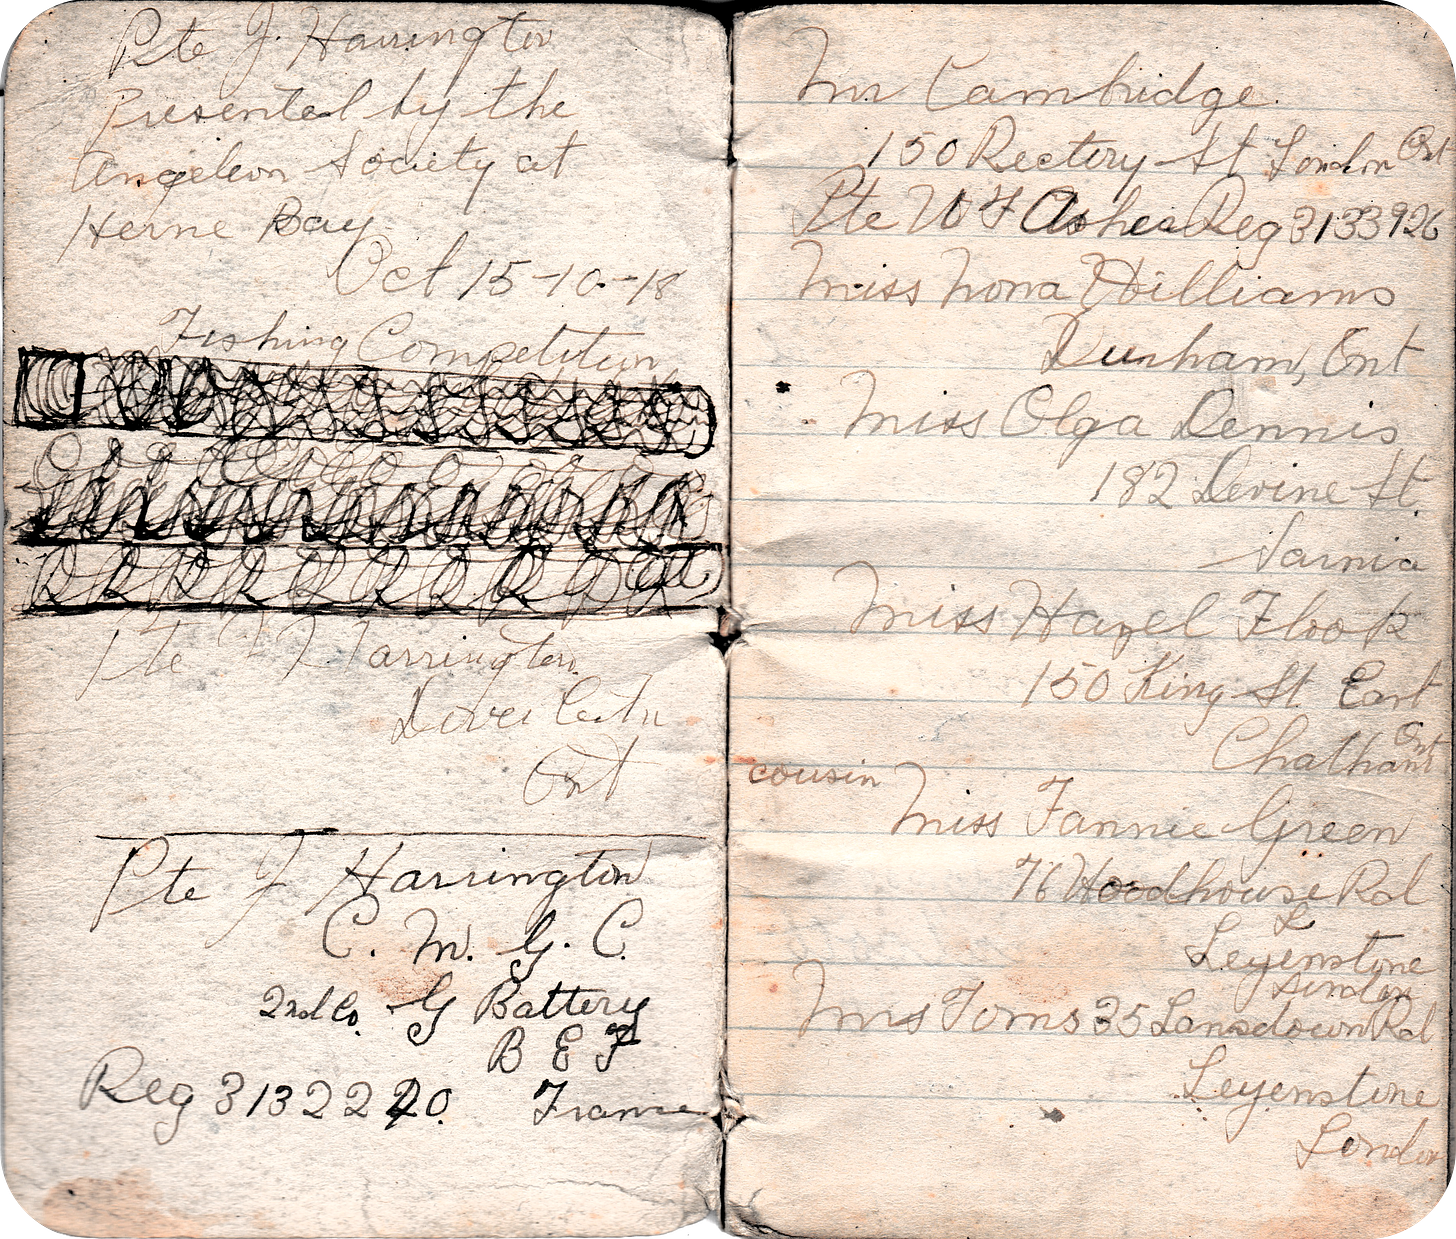 Pte J. Harrington
Presented by the
Angeleon Society at
Herne Bay
Oct 15-10-18
Fishing Competition
Pte J Harrington
Dover Centre
Ont
Pte J Harrington
C. M. G. C.
2nd Co. G Battery
B E F
Reg 3132220. France
Mr Cambridge.
150 Rectory St London Ont
Pte W F Ashes Reg 3133926
Miss Nona Williams
Dunham, Ont
Miss Olga Dennis
182 Devine St.
Sarnia
Miss Hazel Flook
150 King St East
Chatham Ont
cousin
Miss Fannie Green
76 Woodhouse Rd
L
Leyenstone
London
Mrs Toms 35 Lansdown Rd
Leyenstone
London